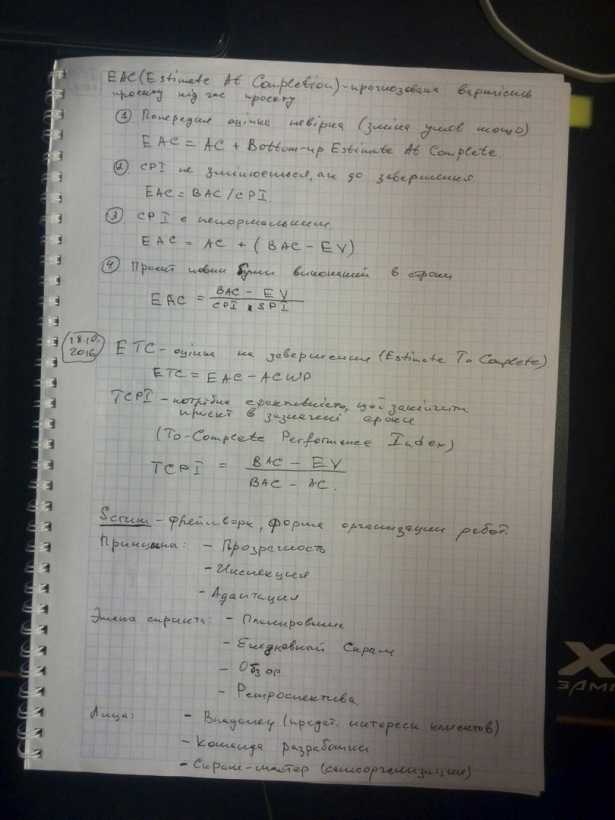 EAC (Estimate At Completion) - прогнозована вартість
проєкту під час проєкту
① Попередня оцінка невірна (зміна умов тощо)
EAC = AC + Bottom-up Estimate At Complete
② CPI не змінюється, аж до завершення
EAC = BAC / CPI.
③ CPI є ненормальним
EAC = AC + (BAC - EV)
④ Проєкт повинен бути виконаний в строки
EAC = BAC - EV / CPI * SPI
18.10.
2016
ETC - оцінка на завершення (Estimate To Complete)
ETC = EAC - ACWP
TCPI - потрібна ефективність, щоб закінчити
проєкт в зазначені строки
(To-Complete Performance Index)
TCPI = BAC - EV / BAC - AC.
Scrum - фреймворк, форма организации работ.
Принципы: - Прозрачность
- Инспекция
- Адаптация
Этапы спринта: - Планирование
- Ежедневный Скрам
- Обзор
- Ретроспектива
Лица: - Владелец (предст. интересы клиентов)
- Команда разработки
- Скрам-мастер (самоорганизации)
X